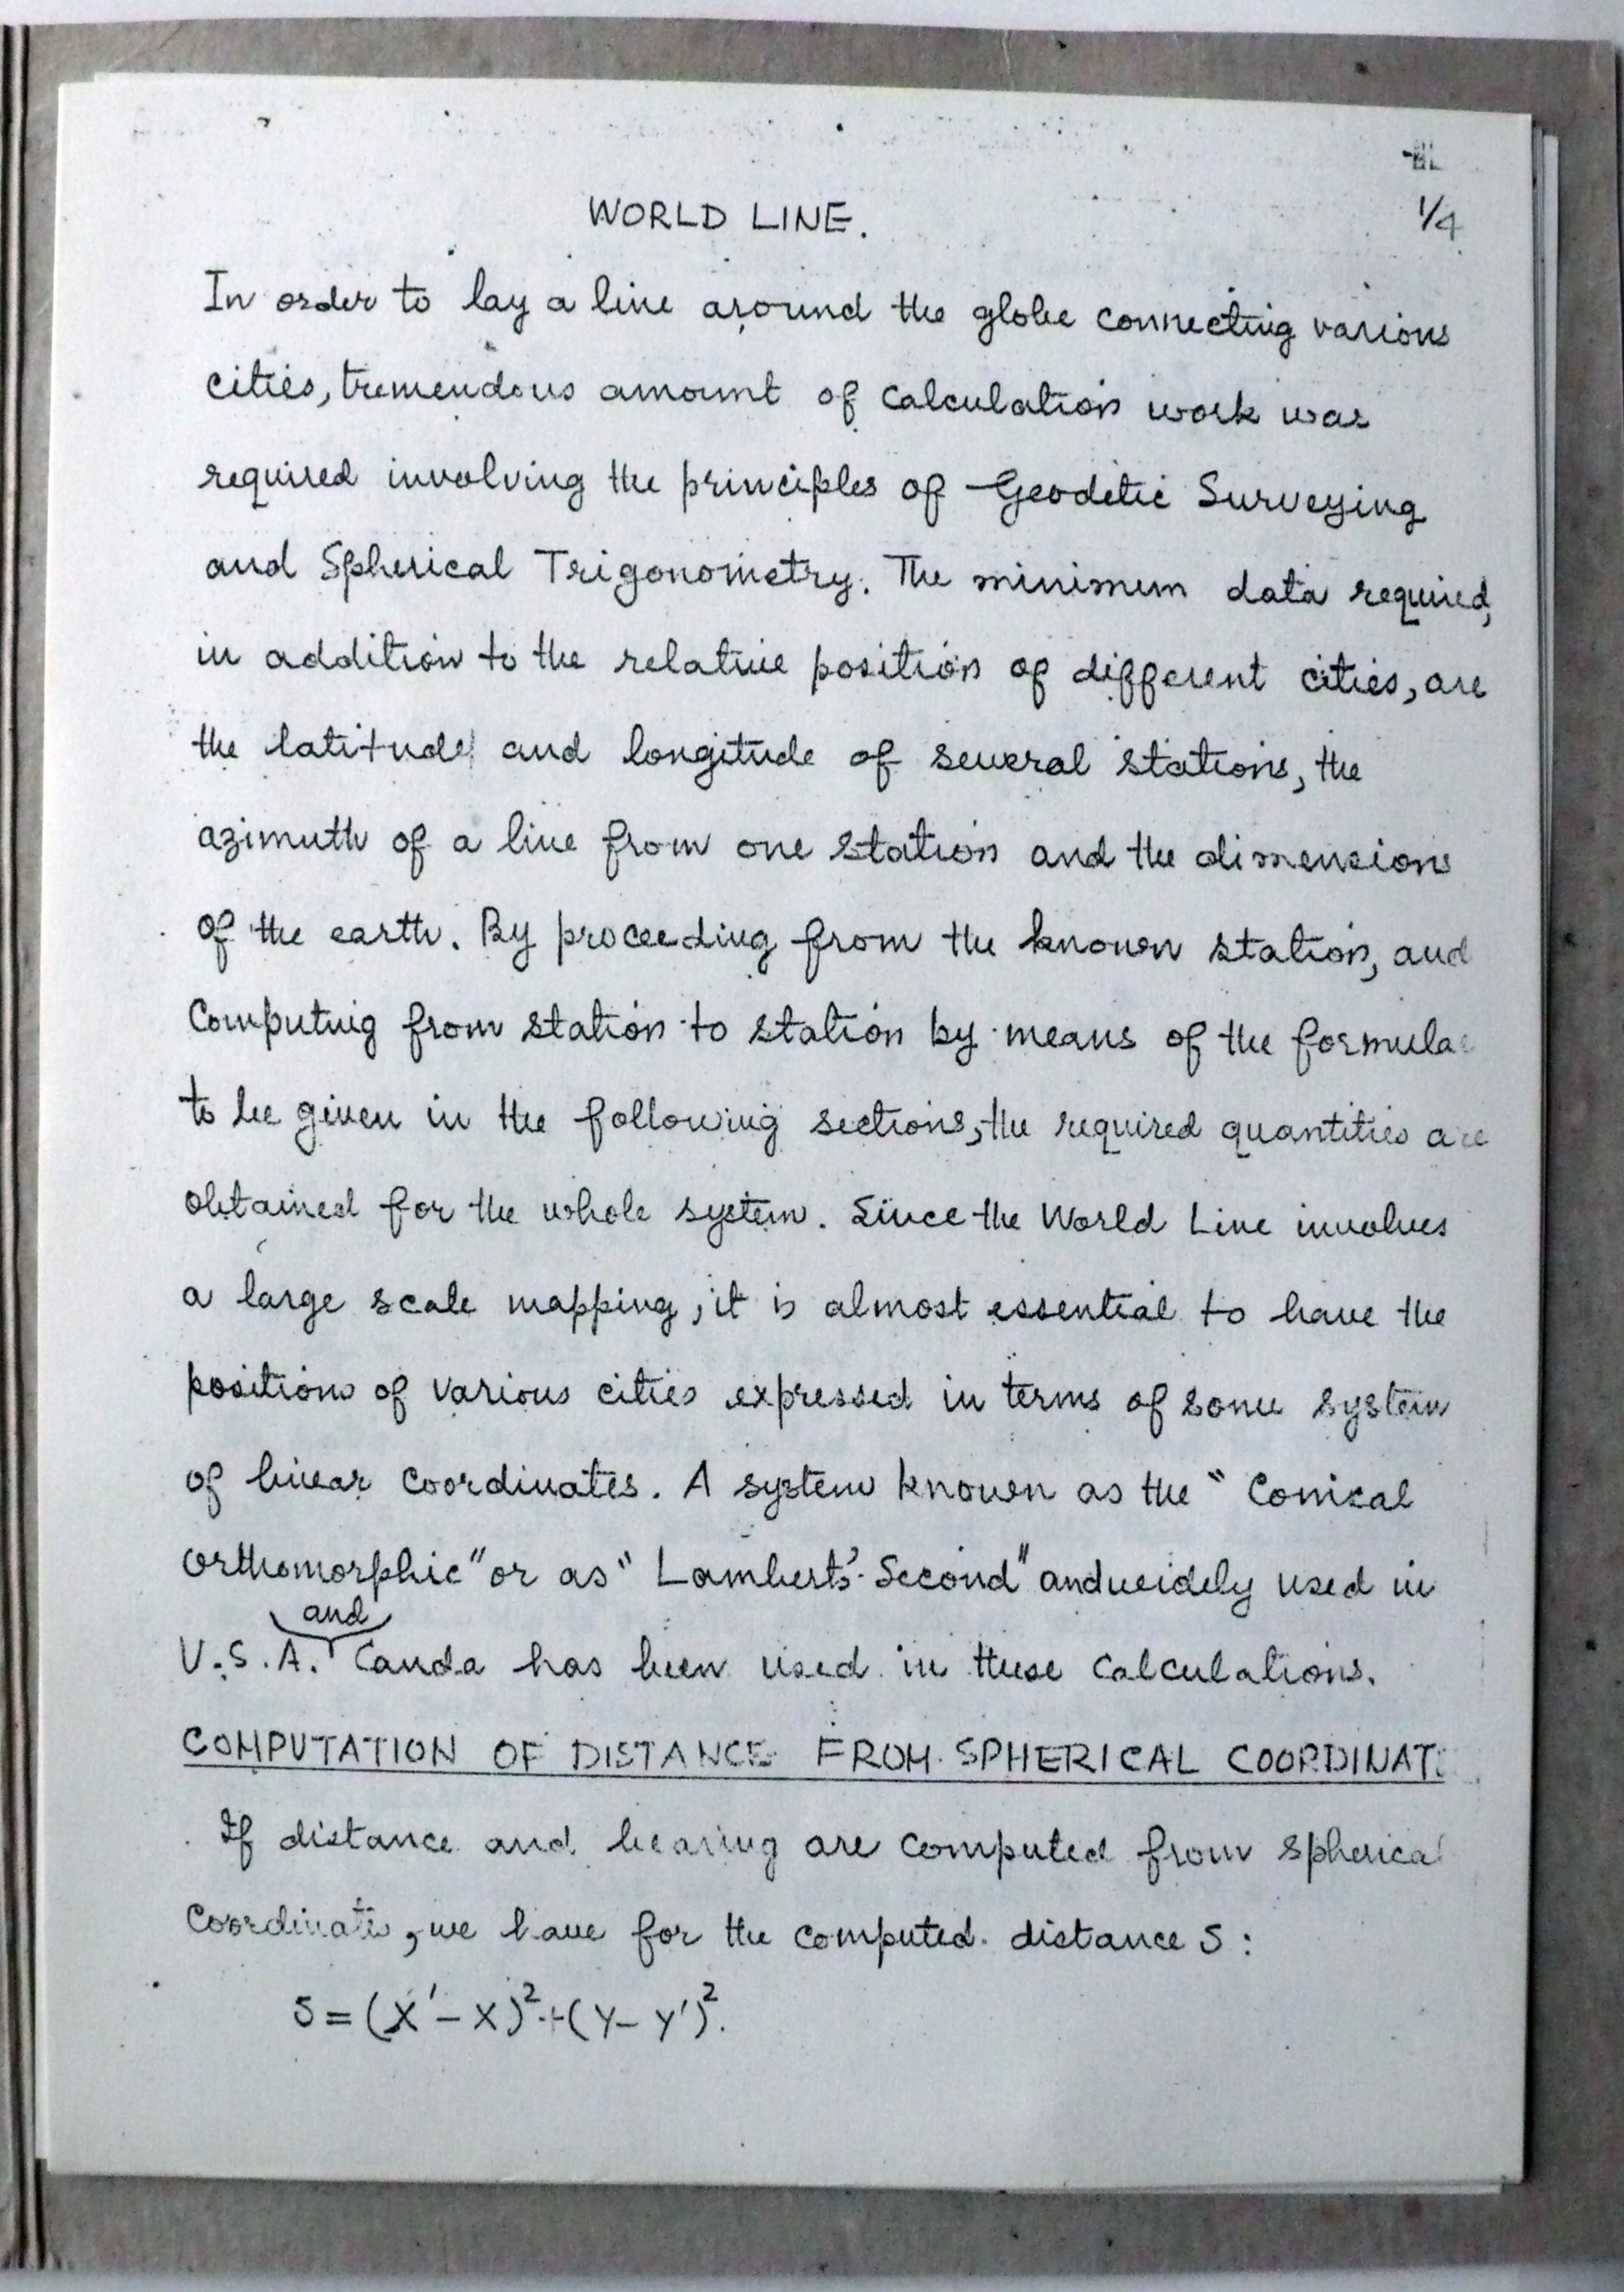 WORLD LINE.
1/4
In order to lay a line around the globe connecting various
cities, tremendous amount of calculation work was
required involving the principles of Geodetic Surveying
and Spherical Trigonometry. The minimum data required,
in addition to the relative position of different cities, are
the latitude and longitude of several stations, the
azimuth of a line from one station and the dimensions
of the earth. By proceeding from the known station, and
Computing from station to station by means of the formulae
to be given in the following sections, the required quantities are
obtained for the whole system. Since the World Line involves
a large scale mapping, it is almost essential to have the
positions of various cities expressed in terms of some system
of linear coordinates. A system known as the "Conical
orthomorphic" or as "Lambert's Second" and widely used in
and
U.S.A. Canda has been used in these calculations.
COMPUTATION OF DISTANCE FROM SPHERICAL COORDINAT
If distance and bearing are computed from spherical
Coordinate, we have for the computed distance S:
S = (X' - X)² + (Y - Y')².